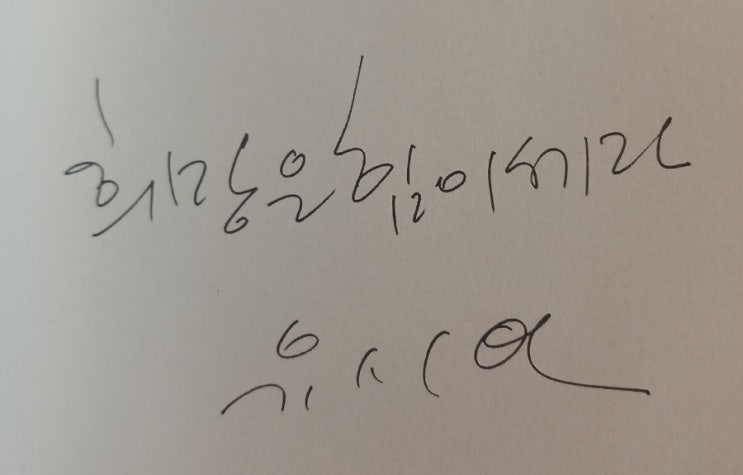 희망은 힘이 세다
유시민